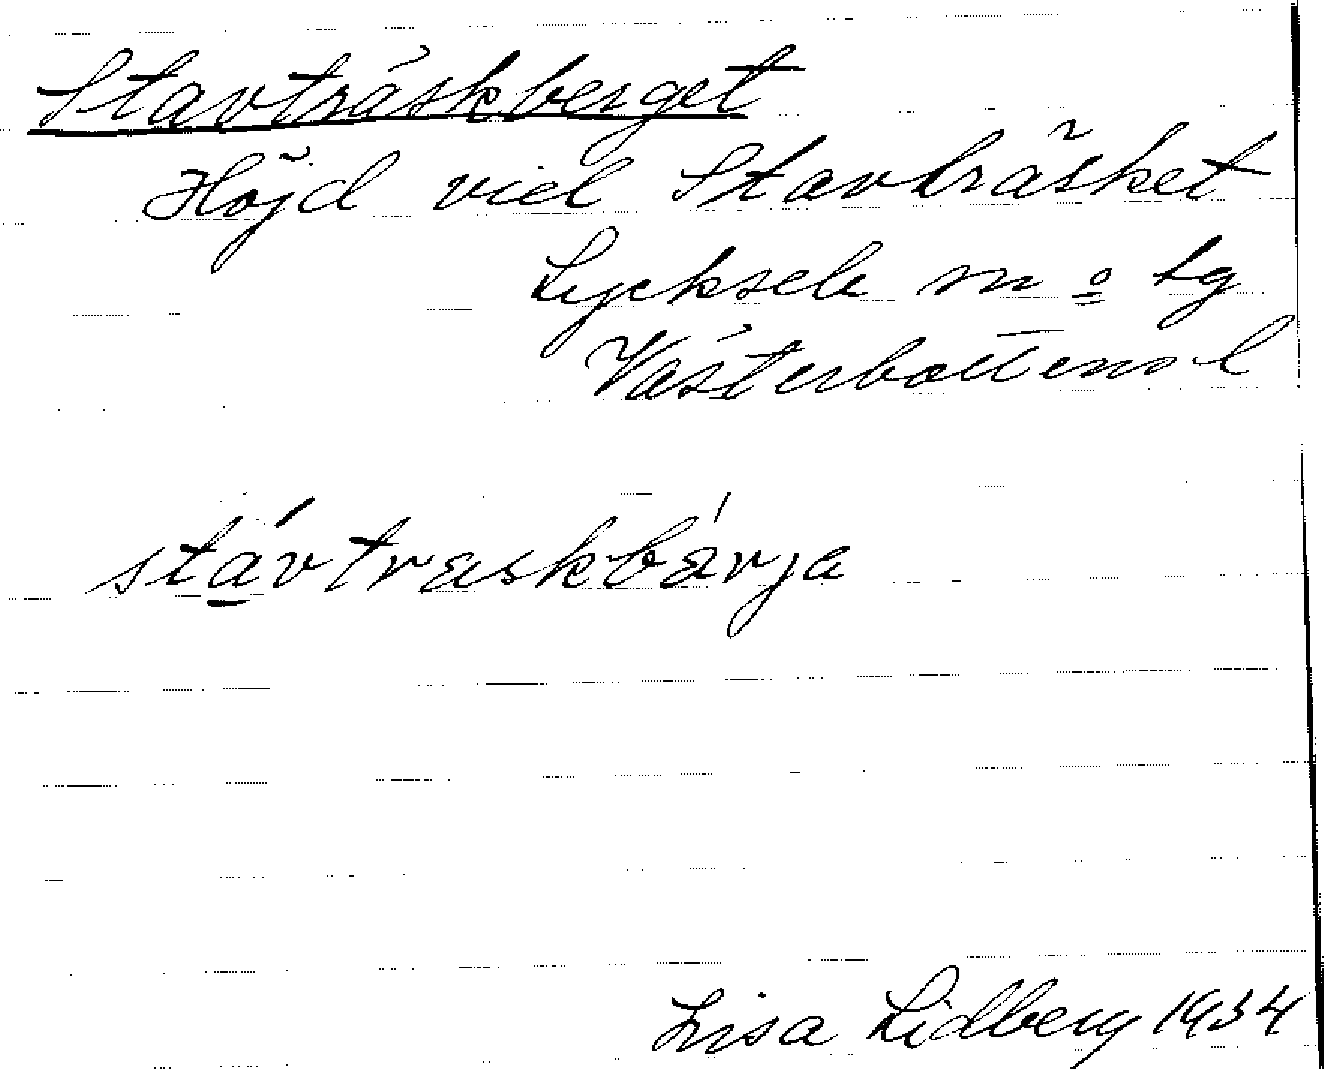 Stavträskberget
Höjd vid Stavträsket
Lycksele m o tg
Västerbottens l
stávtraskbárja
Lisa Lidberg 1934